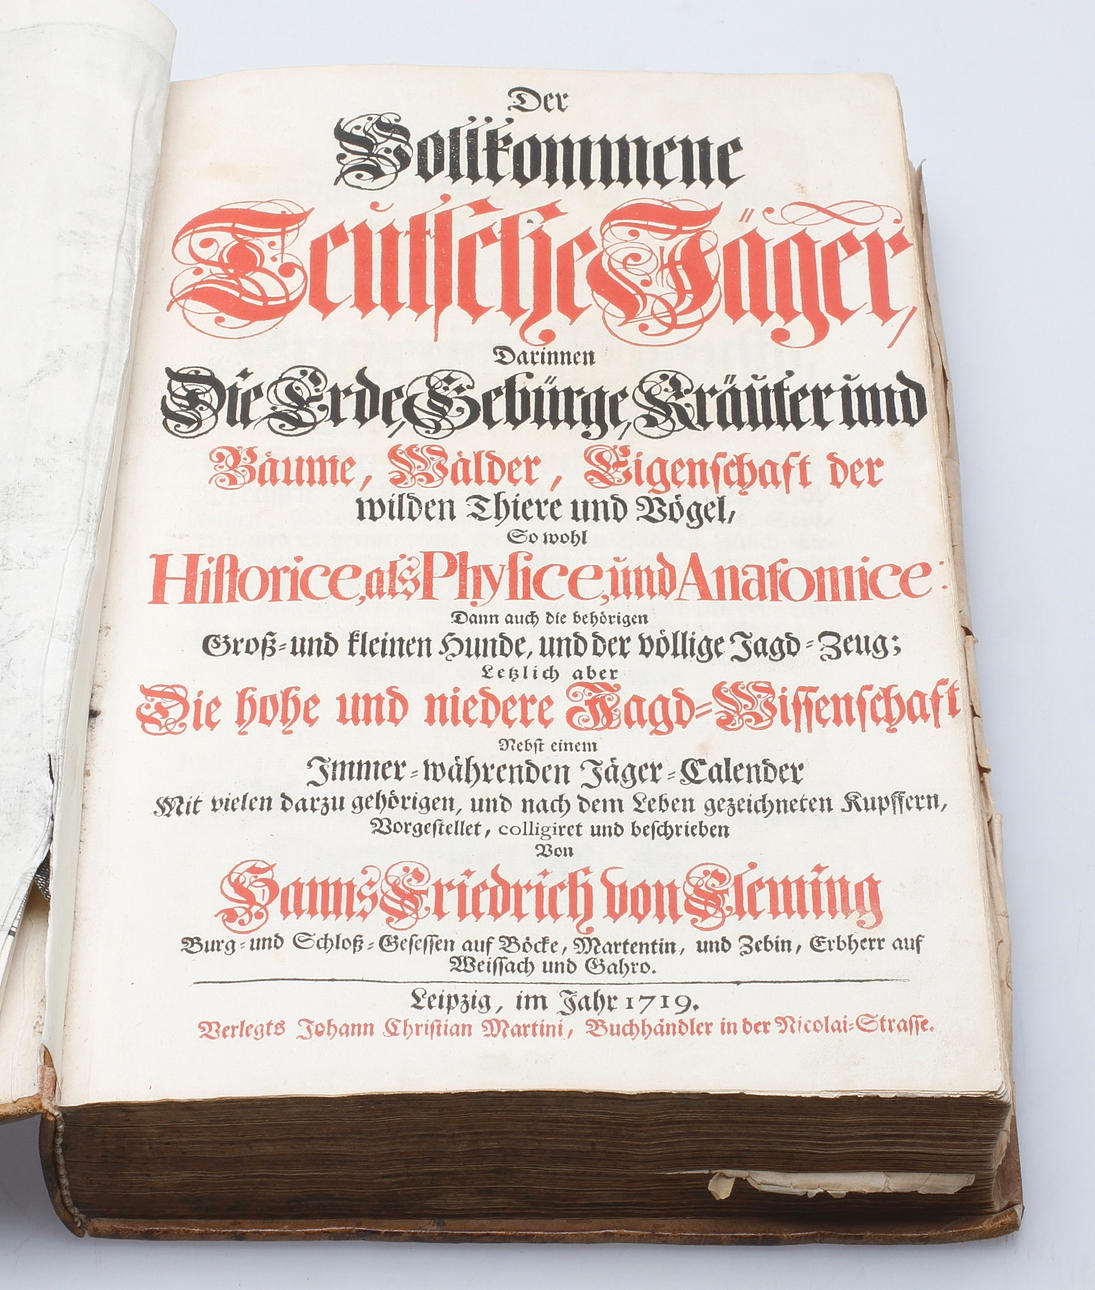 Der
Vollkommene
Teutsche Jäger,
Darinnen
Die Erde, Gebürge, Kräuter und
Bäume, Wälder, Eigenschaft der
wilden Thiere und Vögel,
So wohl
Historice, als Physice, und Anatomice:
Dann auch die behörigen
Groß- und kleinen Hunde, und der völlige Jagd-Zeug;
Letzlich aber
Die hohe und niedere Jagd-Wissenschaft
Nebst einem
Immer-währenden Jäger-Calender
Mit vielen darzu gehörigen, und nach dem Leben gezeichneten Kupffern,
Vorgestellet, colligiret und beschrieben
Von
Hanns Friedrich von Fleming
Burg- und Schloß-Gesessen auf Böcke, Martentin, und Zebin, Erbherr auf
Weissach und Gahro.
Leipzig, im Jahr 1719.
Verlegts Johann Christian Martini, Buchhändler in der Nicolai-Strasse.